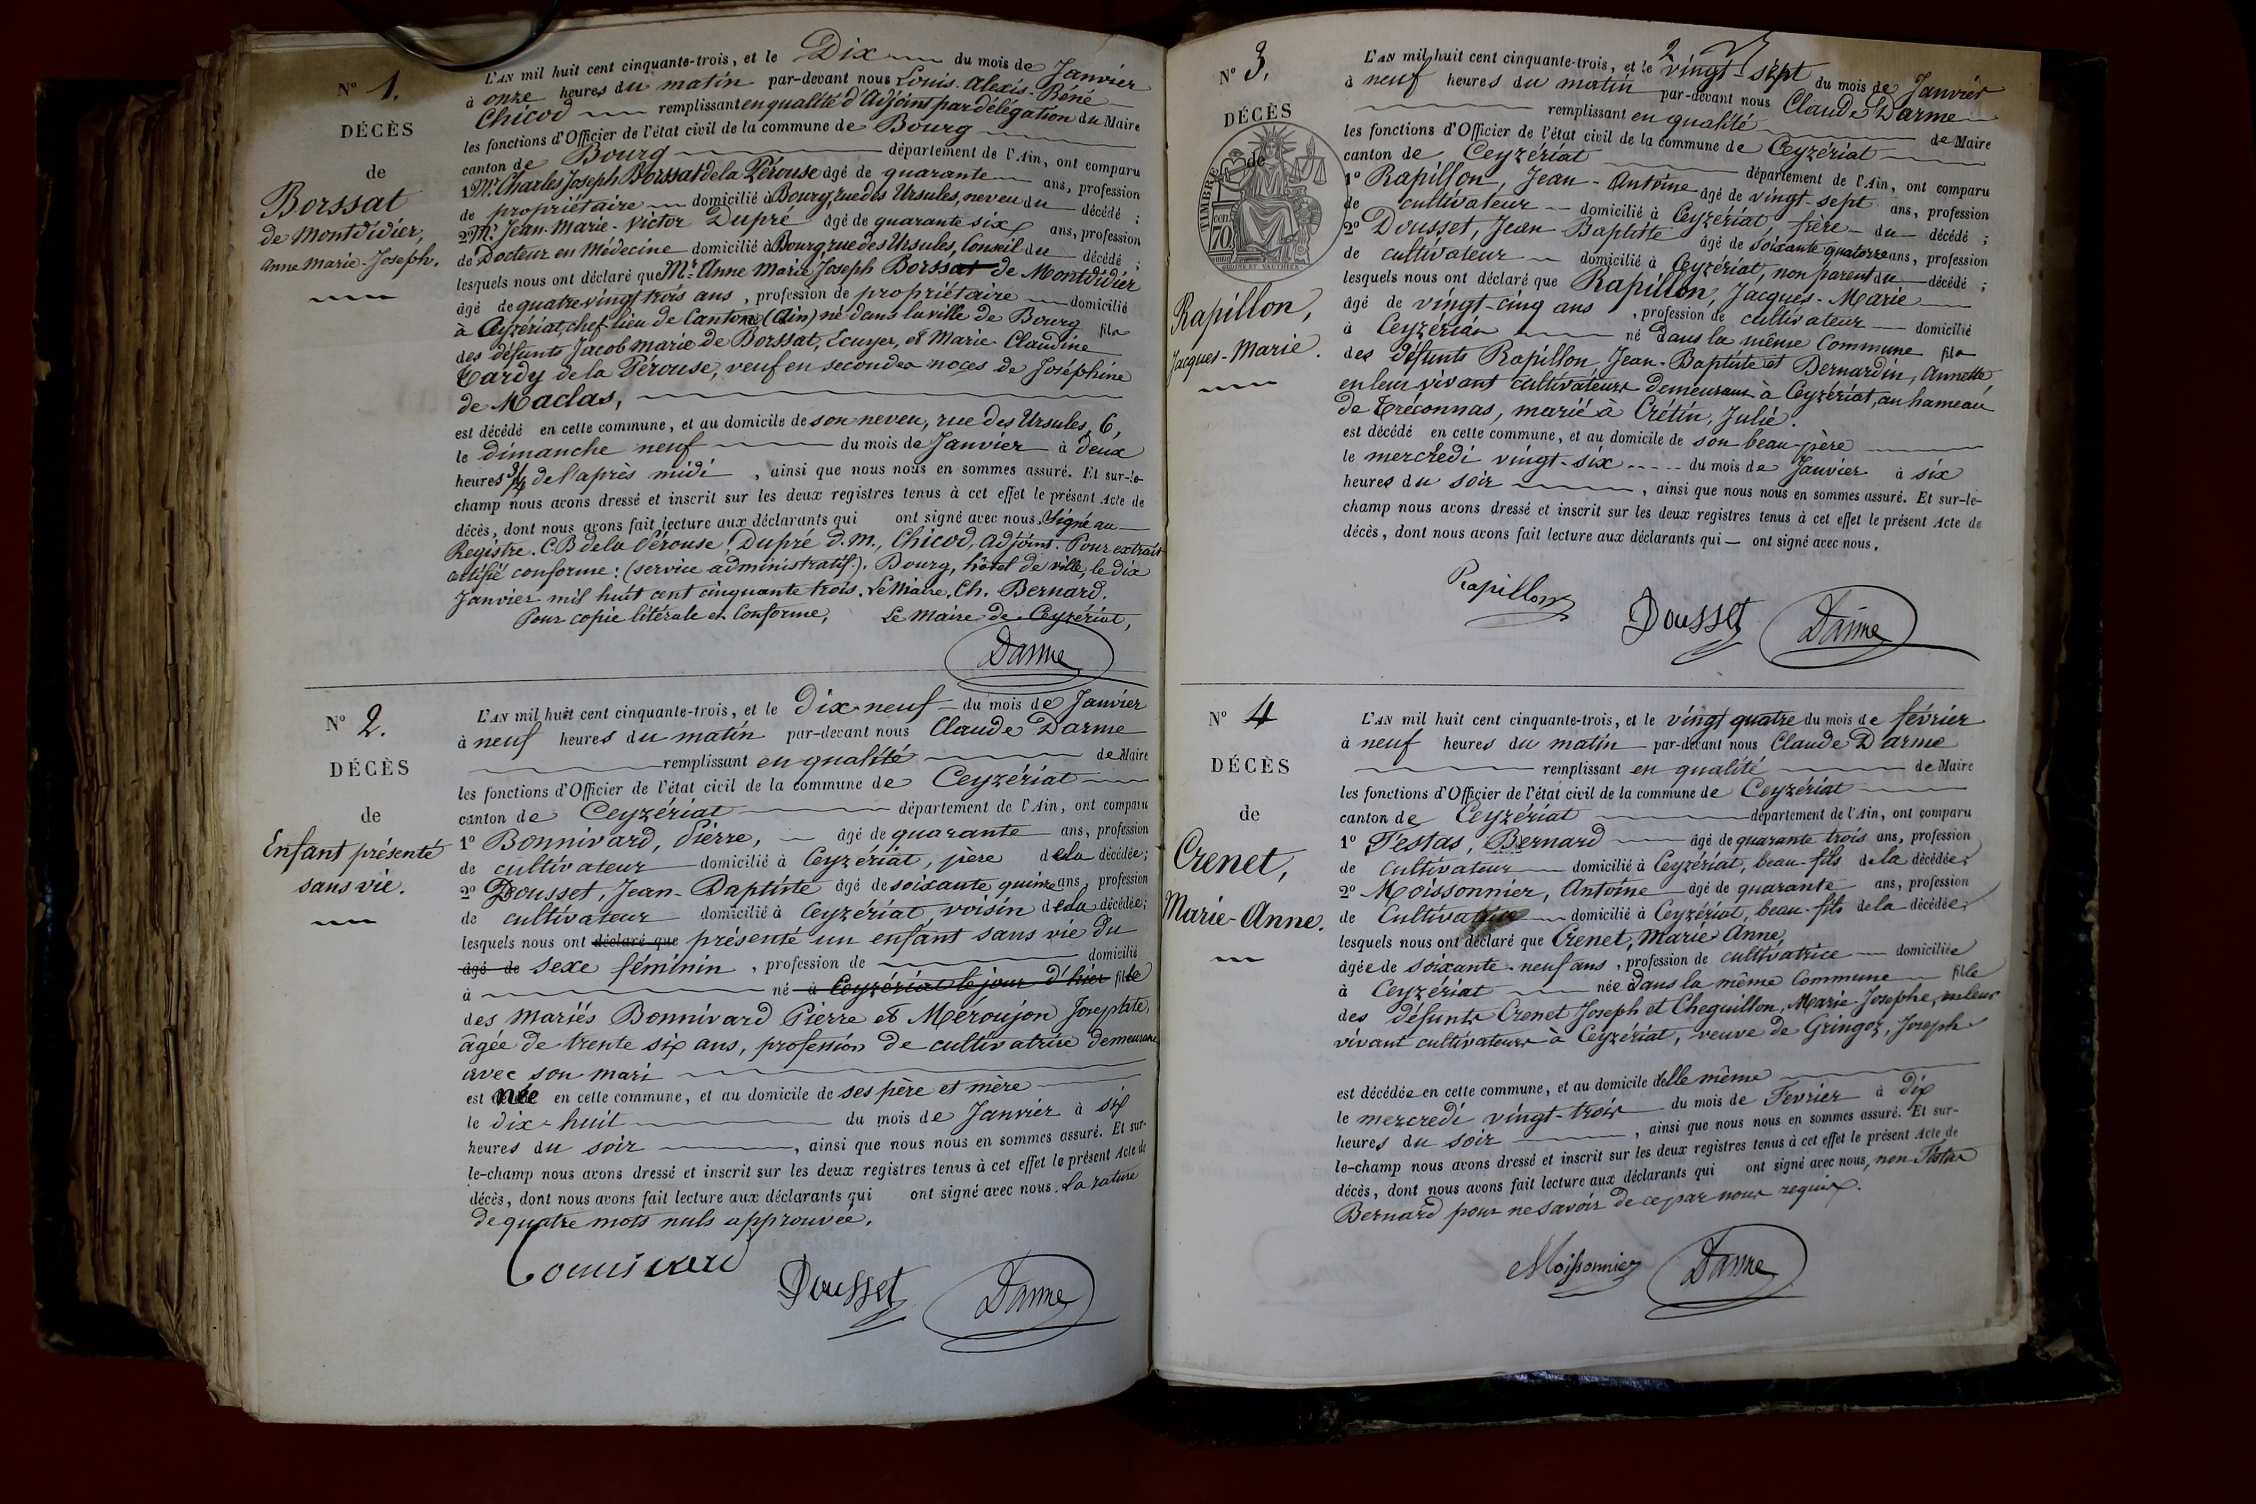 N° 1.
DÉCÈS
de
Borssat
de Montdidier,
Anne Marie-Joseph.
L'AN mil huit cent cinquante-trois, et le Dix du mois de Janvier
à onze heures du matin par-devant nous Louis-Alexis-Réné
Chicod remplissant en qualité d'Adjoint par délégation du Maire
les fonctions d'Officier de l'état civil de la commune de Bourg
canton de Bourg département de l'Ain, ont comparu
1° Mr. Charles Joseph Borssat de la Pérouse âgé de quarante ans, profession
de propriétaire domicilié à Bourg, rue des Ursules, neveu du décédé ;
2° Mr. Jean-Marie-Victor Dupré âgé de quarante six ans, profession
de Docteur en Médecine domicilié à Bourg, rue des Ursules, Conseil du décédé ;
lesquels nous ont déclaré que Mr. Anne Marie Joseph Borssat de Montdidier
âgé de quatre vingt trois ans, profession de propriétaire domicilié
à Ceyzériat, chef lieu de Canton, (Ain) né dans la ville de Bourg fils
des défunts Jacob marie de Borssat, Ecuyer, et Marie Claudine
Tardy de la Pérouse, veuf en secondes noces de Joséphine
de Maclas,
est décédé en cette commune, et au domicile de son neveu, rue des Ursules, 6,
le dimanche neuf du mois de Janvier à deux
heures 3/4 de l'après midi, ainsi que nous nous en sommes assuré. Et sur-le-
champ nous avons dressé et inscrit sur les deux registres tenus à cet effet le présent Acte de
décès, dont nous avons fait lecture aux déclarants qui ont signé avec nous. Signé au
Registre. C. B de la Pérouse, Dupré d. m., Chicod, adjoint. Pour extrait
certifié conforme : (service administratif). Bourg, hôtel de ville, le dix
Janvier mil huit cent cinquante trois. Le Maire, Ch. Bernard.
Pour copie litérale et Conforme, Le Maire de Ceyzériat,
Darme
N° 2.
DÉCÈS
de
Enfant présenté
sans vie.
L'AN mil huit cent cinquante-trois, et le dix-neuf du mois de Janvier
à neuf heures du matin par-devant nous Claude Darme
remplissant en qualité de Maire
les fonctions d'Officier de l'état civil de la commune de Ceyzériat
canton de Ceyzériat département de l'Ain, ont comparu
1° Bonnivard, Pierre, âgé de quarante ans, profession
de cultivateur domicilié à Ceyzériat, père de la décédée;
2° Dousset, Jean-Baptiste âgé de soixante quinze ans, profession
de cultivateur domicilié à Ceyzériat, voisin de la décédée;
lesquels nous ont déclaré que présenté un enfant sans vie du
âgé de sexe féminin, profession de domicilié
à né à Ceyzériat le jour d'hier fille
des mariés Bonnivard Pierre et Méroujon Josephte,
âgée de trente six ans, profession de cultivatrice demeurant
avec son mari
est née en cette commune, et au domicile de ses père et mère
le dix-huit du mois de Janvier à six
heures du soir, ainsi que nous nous en sommes assuré. Et sur-
le-champ nous avons dressé et inscrit sur les deux registres tenus à cet effet le présent Acte de
décès, dont nous avons fait lecture aux déclarants qui ont signé avec nous. La rature
de quatre mots nuls approuvée.
Bonnivard Dousset Darme
N° 3.
DÉCÈS
de
TIMBRE
cent
70
Rapillon,
Jacques-Marie.
2
L'AN mil huit cent cinquante-trois, et le vingt-sept du mois de Janvier
à neuf heures du matin par-devant nous Claude Darme
remplissant en qualité de Maire
les fonctions d'Officier de l'état civil de la commune de Ceyzériat
canton de Ceyzériat département de l'Ain, ont comparu
1° Rapillon, Jean-Antoine âgé de vingt-sept ans, profession
de cultivateur domicilié à Ceyzériat, frère du décédé ;
2° Dousset, Jean Baptiste âgé de soixante quatorze ans, profession
de cultivateur domicilié à Ceyzériat, non parent du décédé ;
lesquels nous ont déclaré que Rapillon, Jacques-Marie
âgé de vingt-cinq ans, profession de cultivateur domicilié
à Ceyzériat né dans la même Commune fils
des défunts Rapillon Jean-Baptiste et Bernardin, Annette,
en leur vivant cultivateurs demeurant à Ceyzériat, au hameau
de Tréconnas, marié à Crétin, Julie.
est décédé en cette commune, et au domicile de son beau-père
le mercredi vingt-six du mois de Janvier à six
heures du soir, ainsi que nous nous en sommes assuré. Et sur-le-
champ nous avons dressé et inscrit sur les deux registres tenus à cet effet le présent Acte de
décès, dont nous avons fait lecture aux déclarants qui ont signé avec nous.
Rapillon Dousset Darme
N° 4
DÉCÈS
de
Crenet,
Marie-Anne.
L'AN mil huit cent cinquante-trois, et le vingt quatre du mois de février
à neuf heures du matin par-devant nous Claude Darme
remplissant en qualité de Maire
les fonctions d'Officier de l'état civil de la commune de Ceyzériat
canton de Ceyzériat département de l'Ain, ont comparu
1° Festas, Bernard âgé de quarante trois ans, profession
de cultivateur domicilié à Ceyzériat, beau-fils de la décédée;
2° Moissonnier, Antoine âgé de quarante ans, profession
de Cultivateur domicilié à Ceyzériat, beau-fils de la décédée;
lesquels nous ont déclaré que Crenet, Marie Anne,
âgée de soixante-neuf ans, profession de cultivatrice domiciliée
à Ceyzériat née dans la même Commune fille
des défunts Crenet Joseph et Cheguillon, Marie-Josephe, en leur
vivant cultivateurs à Ceyzériat, veuve de Gringoz, Joseph
est décédée en cette commune, et au domicile d'elle même
le mercredi vingt-trois du mois de Février à dix
heures du soir, ainsi que nous nous en sommes assuré. Et sur-
le-champ nous avons dressé et inscrit sur les deux registres tenus à cet effet le présent Acte de
décès, dont nous avons fait lecture aux déclarants qui ont signé avec nous, non Festas
Bernard pour ne savoir de ce par nous requis.
Moissonnier Darme